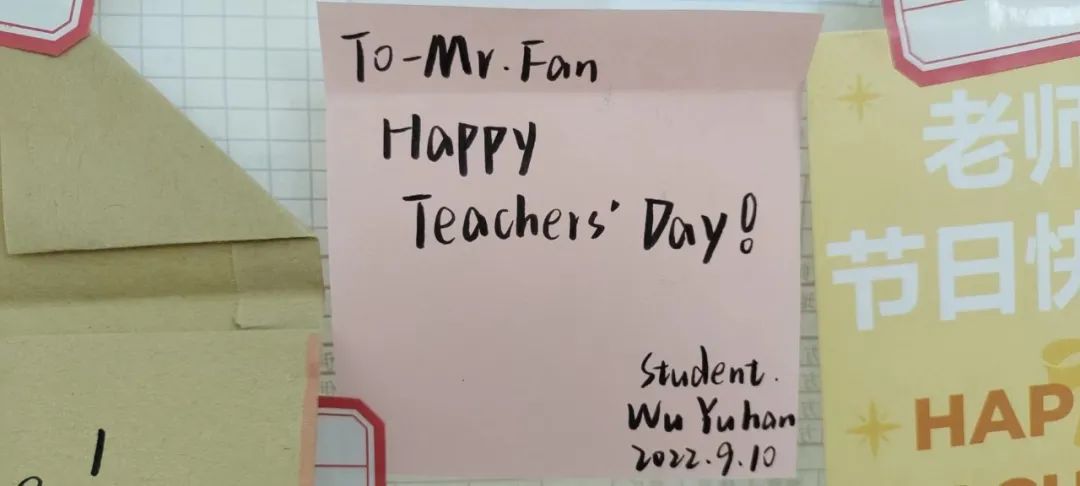 To-Mr. Fan
Happy
Teachers' Day!
Student.
Wu Yuhan
2022.9.10
老师
节日快
HAP